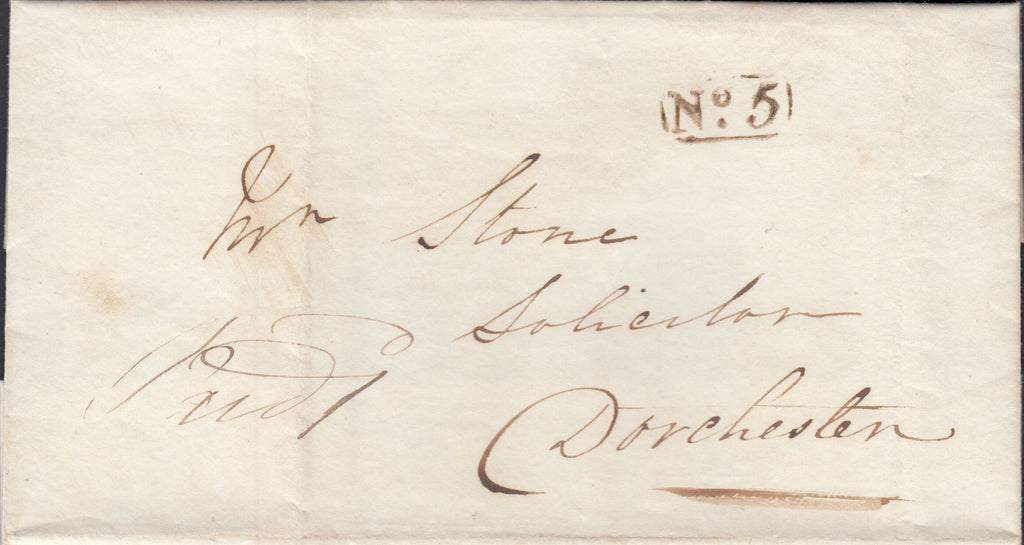 No. 5
Mr Stone
Solicitor
Dorchester